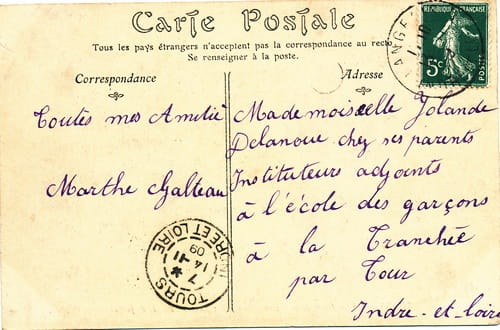 Carte Postale
Tous les pays étrangers n'acceptent pas la correspondance au recto
Se renseigner à la poste.
Correspondance
Adresse
Toutes mes Amitié
Marthe Galteau
Mademoiselle Jolande
Delanoue chez ses parents
Instituteurs adjoints
à l'école des garçons
à la Tranchée
par Tour
Indre-et-loire
REPUBLIQUE FRANÇAISE
5c
POSTES
ANGE
TOURS
INDRE ET LOIRE
7 *
14 - 11
09